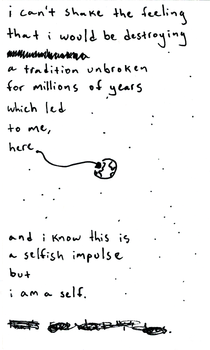 i can't shake the feeling
that i would be destroying
a tradition unbroken
for millions of years
which led
to me,
here
and i know this is
a selfish impulse
but
i am a self.